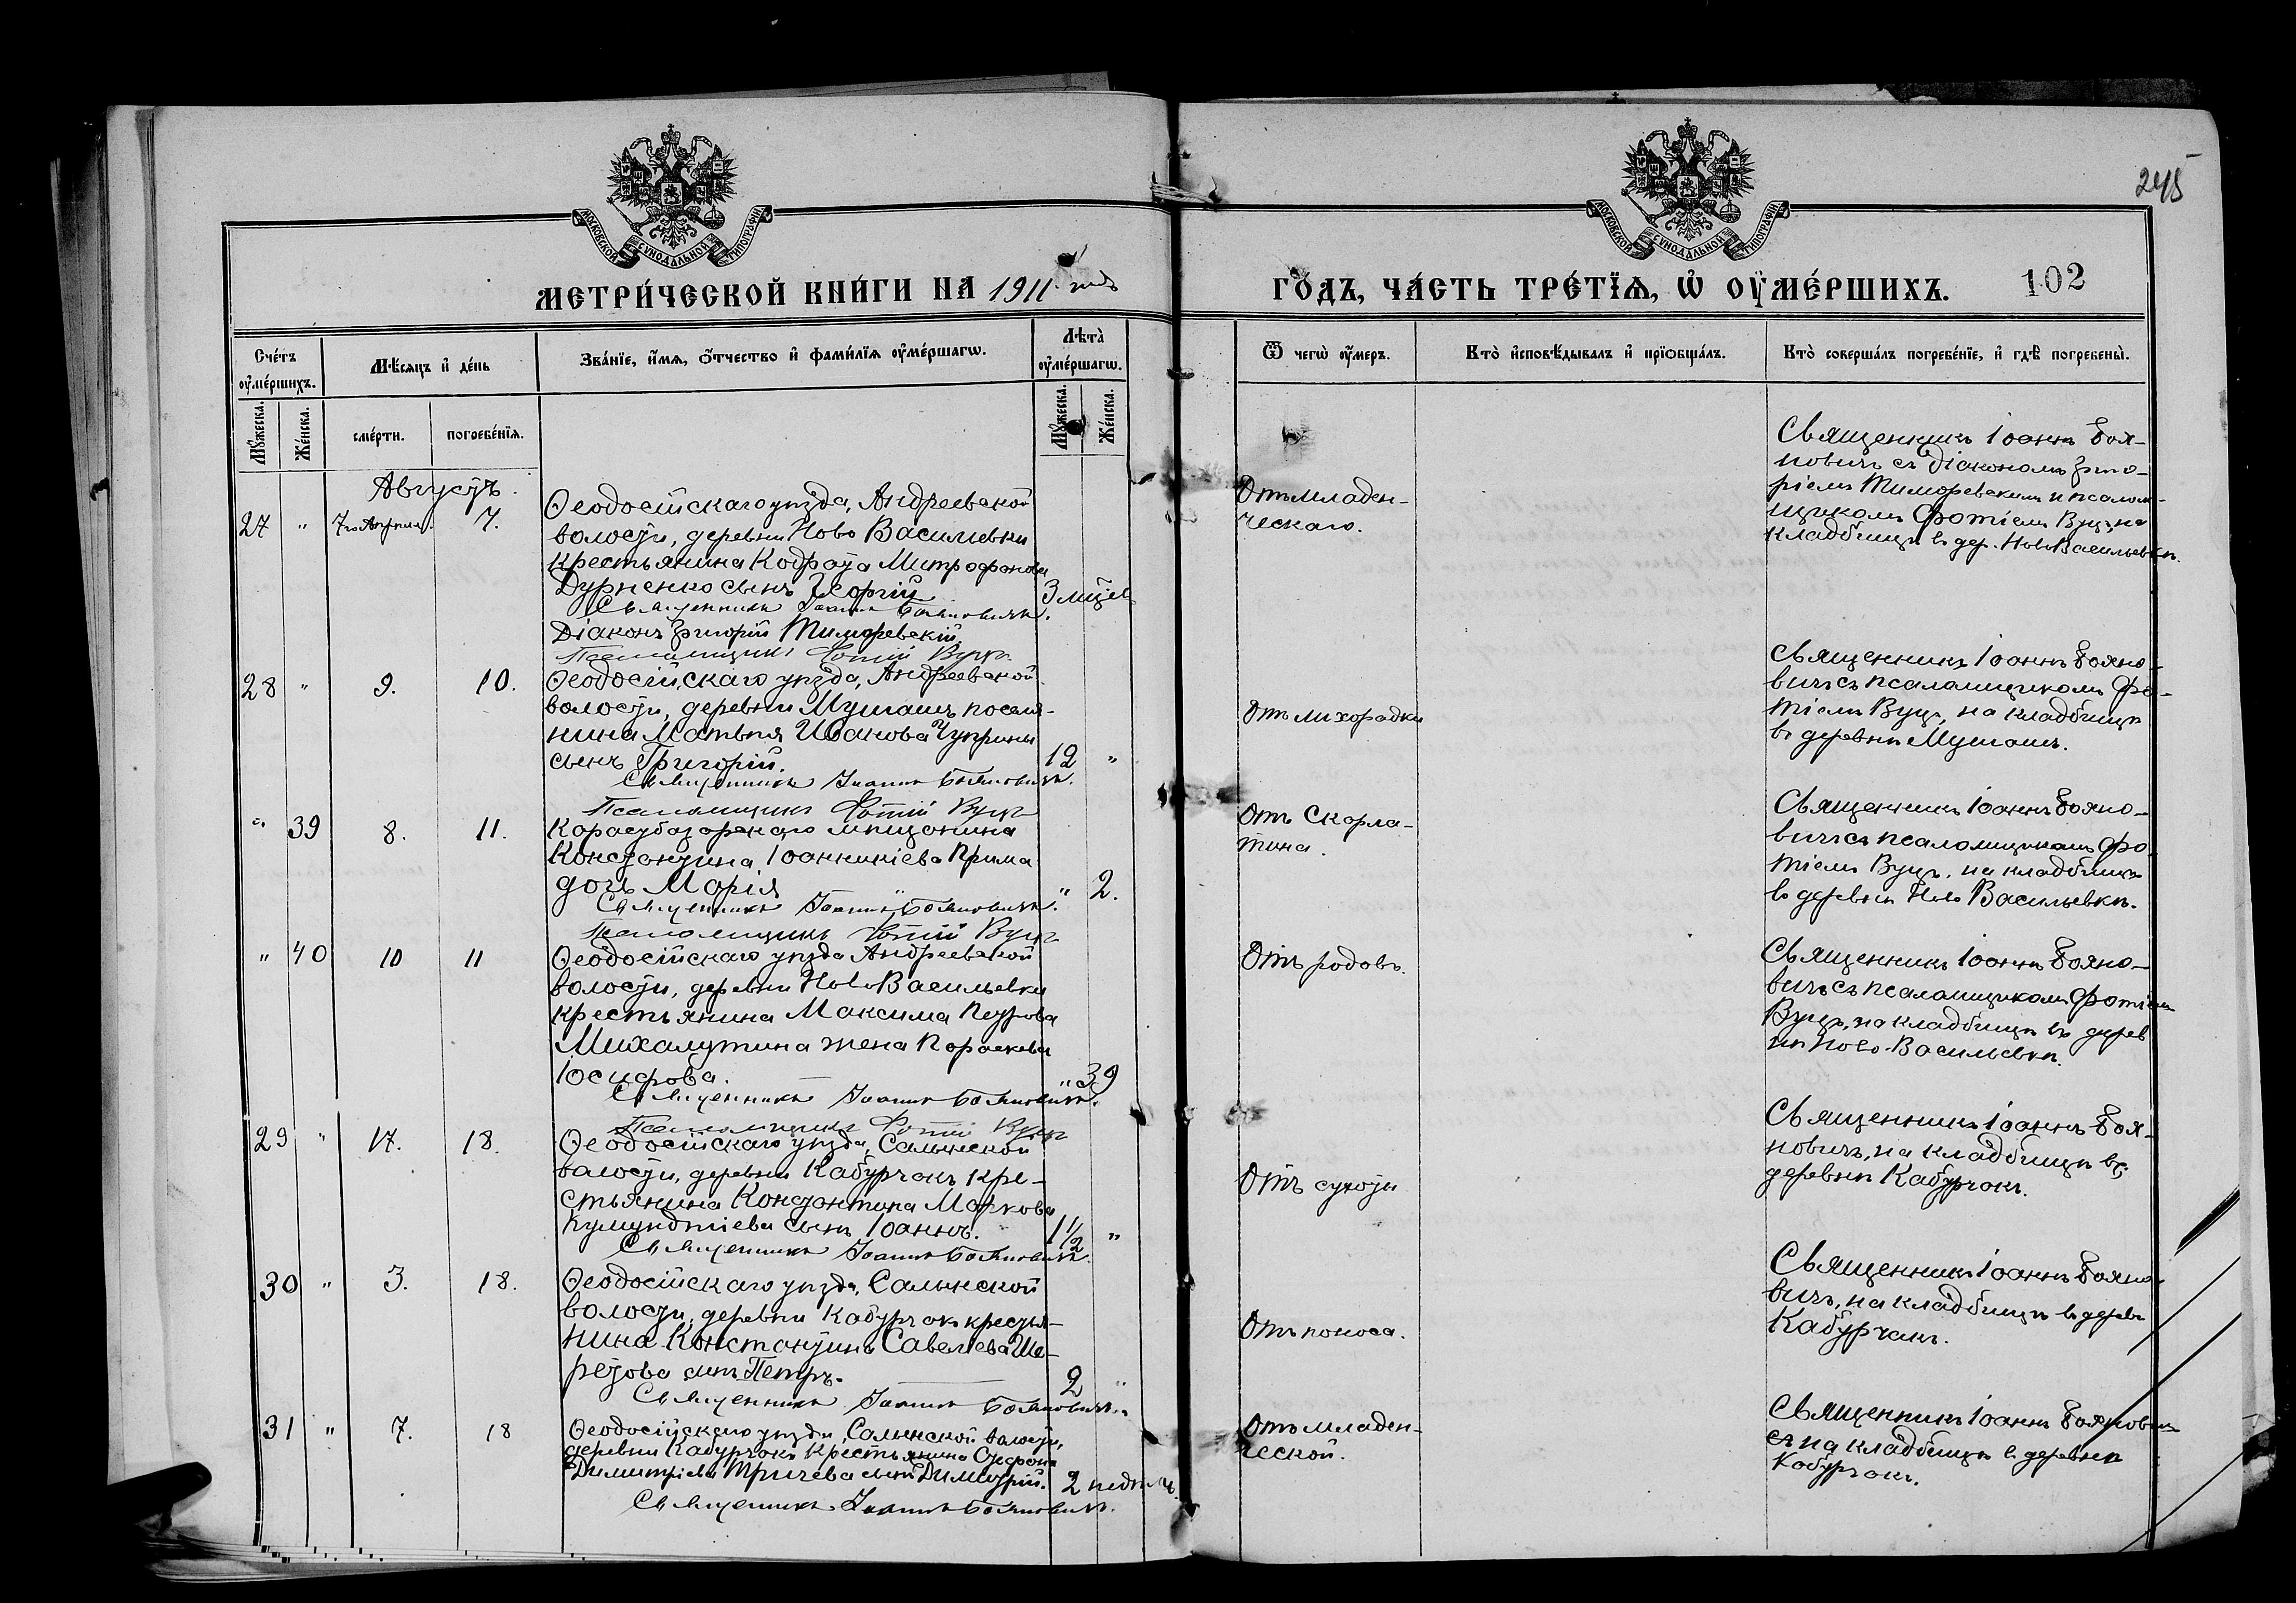 МОСКОВСКОЙ СѴНОДАЛЬНОЙ ТИПОГРАФІИ
МОСКОВСКОЙ СѴНОДАЛЬНОЙ ТИПОГРАФІИ
245
МЕТРИ́ЧЕСКОЙ КНИ́ГИ НА 1911 годъ
ГО́ДЪ, ЧА́СТЬ ТРЕ́ТЇѦ, Ѽ ОУ҆МЕ́РШИХЪ.
102
Сче́тъ оу҆ме́ршихъ.
Мѣ́сяцъ и҆ де́нь
Зва́нїе, и҆́мѧ, о҆́тчество и҆ фами́лїѧ оу҆ме́ршагѡ.
Лѣ́та оу҆ме́ршагѡ.
Ѿ чегѡ̀ оу҆́меръ.
Кто̀ и҆сповѣ́дывалъ и҆ прїобща́лъ.
Кто̀ соверша́лъ погребе́нїе, и҆ гдѣ̀ погребены̀.
Мꙋ́жеска.
Же́нска.
сме́рти.
погребе́нїѧ.
Мꙋ́жеска.
Же́нска.
Августъ.
27 " 7го Апрѣля. 7.
Ѳеодосійскаго уѣзда, Андреевской
волости, деревни Ново Васильевки
крестьянина Кодрата Митрофанова
Дурненко сынъ Георгій
3 мѣсяц
Священникъ Іоаннъ Бояновичъ.
Діаконъ Григорій Тиморевскій.
Псаломщикъ Фотій Вуцъ
Отъ младен-
ческаго.
Священникъ Іоаннъ Боя-
новичъ съ діакономъ Григо-
ріемъ Тиморевскимъ и псалом-
щикомъ Фотіемъ Вуцъ, на
кладбищѣ в дер. Ново Васильевкѣ.
28 " 9. 10.
Ѳеодосійскаго уѣзда, Андреевской
волости, деревни Мушашъ поселя-
нина Матвѣя Иванова Чуприны
сынъ Григорій.
12 "
Священникъ Іоаннъ Бояновичъ.
Псаломщикъ Фотій Вуцъ
Отъ лихорадки
Священникъ Іоаннъ Бояно-
вичъ съ псаломщикомъ Фо-
тіемъ Вуцъ, на кладбищѣ
въ деревнѣ Мушашъ.
" 39 8. 11.
Карасубазарскаго мѣщанина
Константина Іоанникіева Прима
дочь Марія
" 2.
Священникъ Іоаннъ Бояновичъ.
Псаломщикъ Фотій Вуцъ
Отъ Скарла-
тина.
Священникъ Іоаннъ Бояно-
вичъ съ псаломщикомъ Фо-
тіемъ Вуцъ, на кладбищѣ
в деревнѣ Ново Васильевкѣ.
" 40 10 11
Ѳеодосійскаго уѣзда Андреевской
волости, деревни Ново Васильевки
крестьянина Максима Петрова
Михалутина жена Параскева
Іосифова.
" 39
Священникъ Іоаннъ Бояновичъ.
Псаломщикъ Фотій Вуцъ
Отъ родовъ.
Священникъ Іоаннъ Бояно-
вичъ съ псаломщикомъ Фотіемъ
Вуцъ, на кладбищѣ въ дерев
нѣ Ново-Васильевкѣ.
29 " 17. 18.
Ѳеодосійскаго уѣзда, Салынской
волости, деревни Кабурчакъ кре-
стьянина Константина Маркова
Кумундтіева сынъ Іоаннъ.
1 1/2 "
Священникъ Іоаннъ Бояновичъ.
Отъ сухоты
Священникъ Іоаннъ Боя-
новичъ, на кладбищѣ въ
деревнѣ Кабурчакъ.
30 " 3. 18.
Ѳеодосійскаго уѣзда, Салынской
волости, деревни Кабурчакъ крестья-
нина Константинъ Савелiева Ше-
ретова сынъ Петръ.
2 "
Священникъ Іоаннъ Бояновичъ.
Отъ поноса.
Священникъ Іоаннъ Бояно-
вичъ, на кладбищѣ в дерев
Кабурчакъ.
31 " 7. 18
Ѳеодосійскаго уѣзда, Салынской волости,
деревни Кабурчакъ крестьянина Стефана
Димитріева Тричева сынъ Димитрій.
2 недѣль.
Священникъ Іоаннъ Бояновичъ.
Отъ младен-
ческой.
Священникъ Іоаннъ Боянович
на кладбищѣ в деревнѣ
Кабурчакъ.